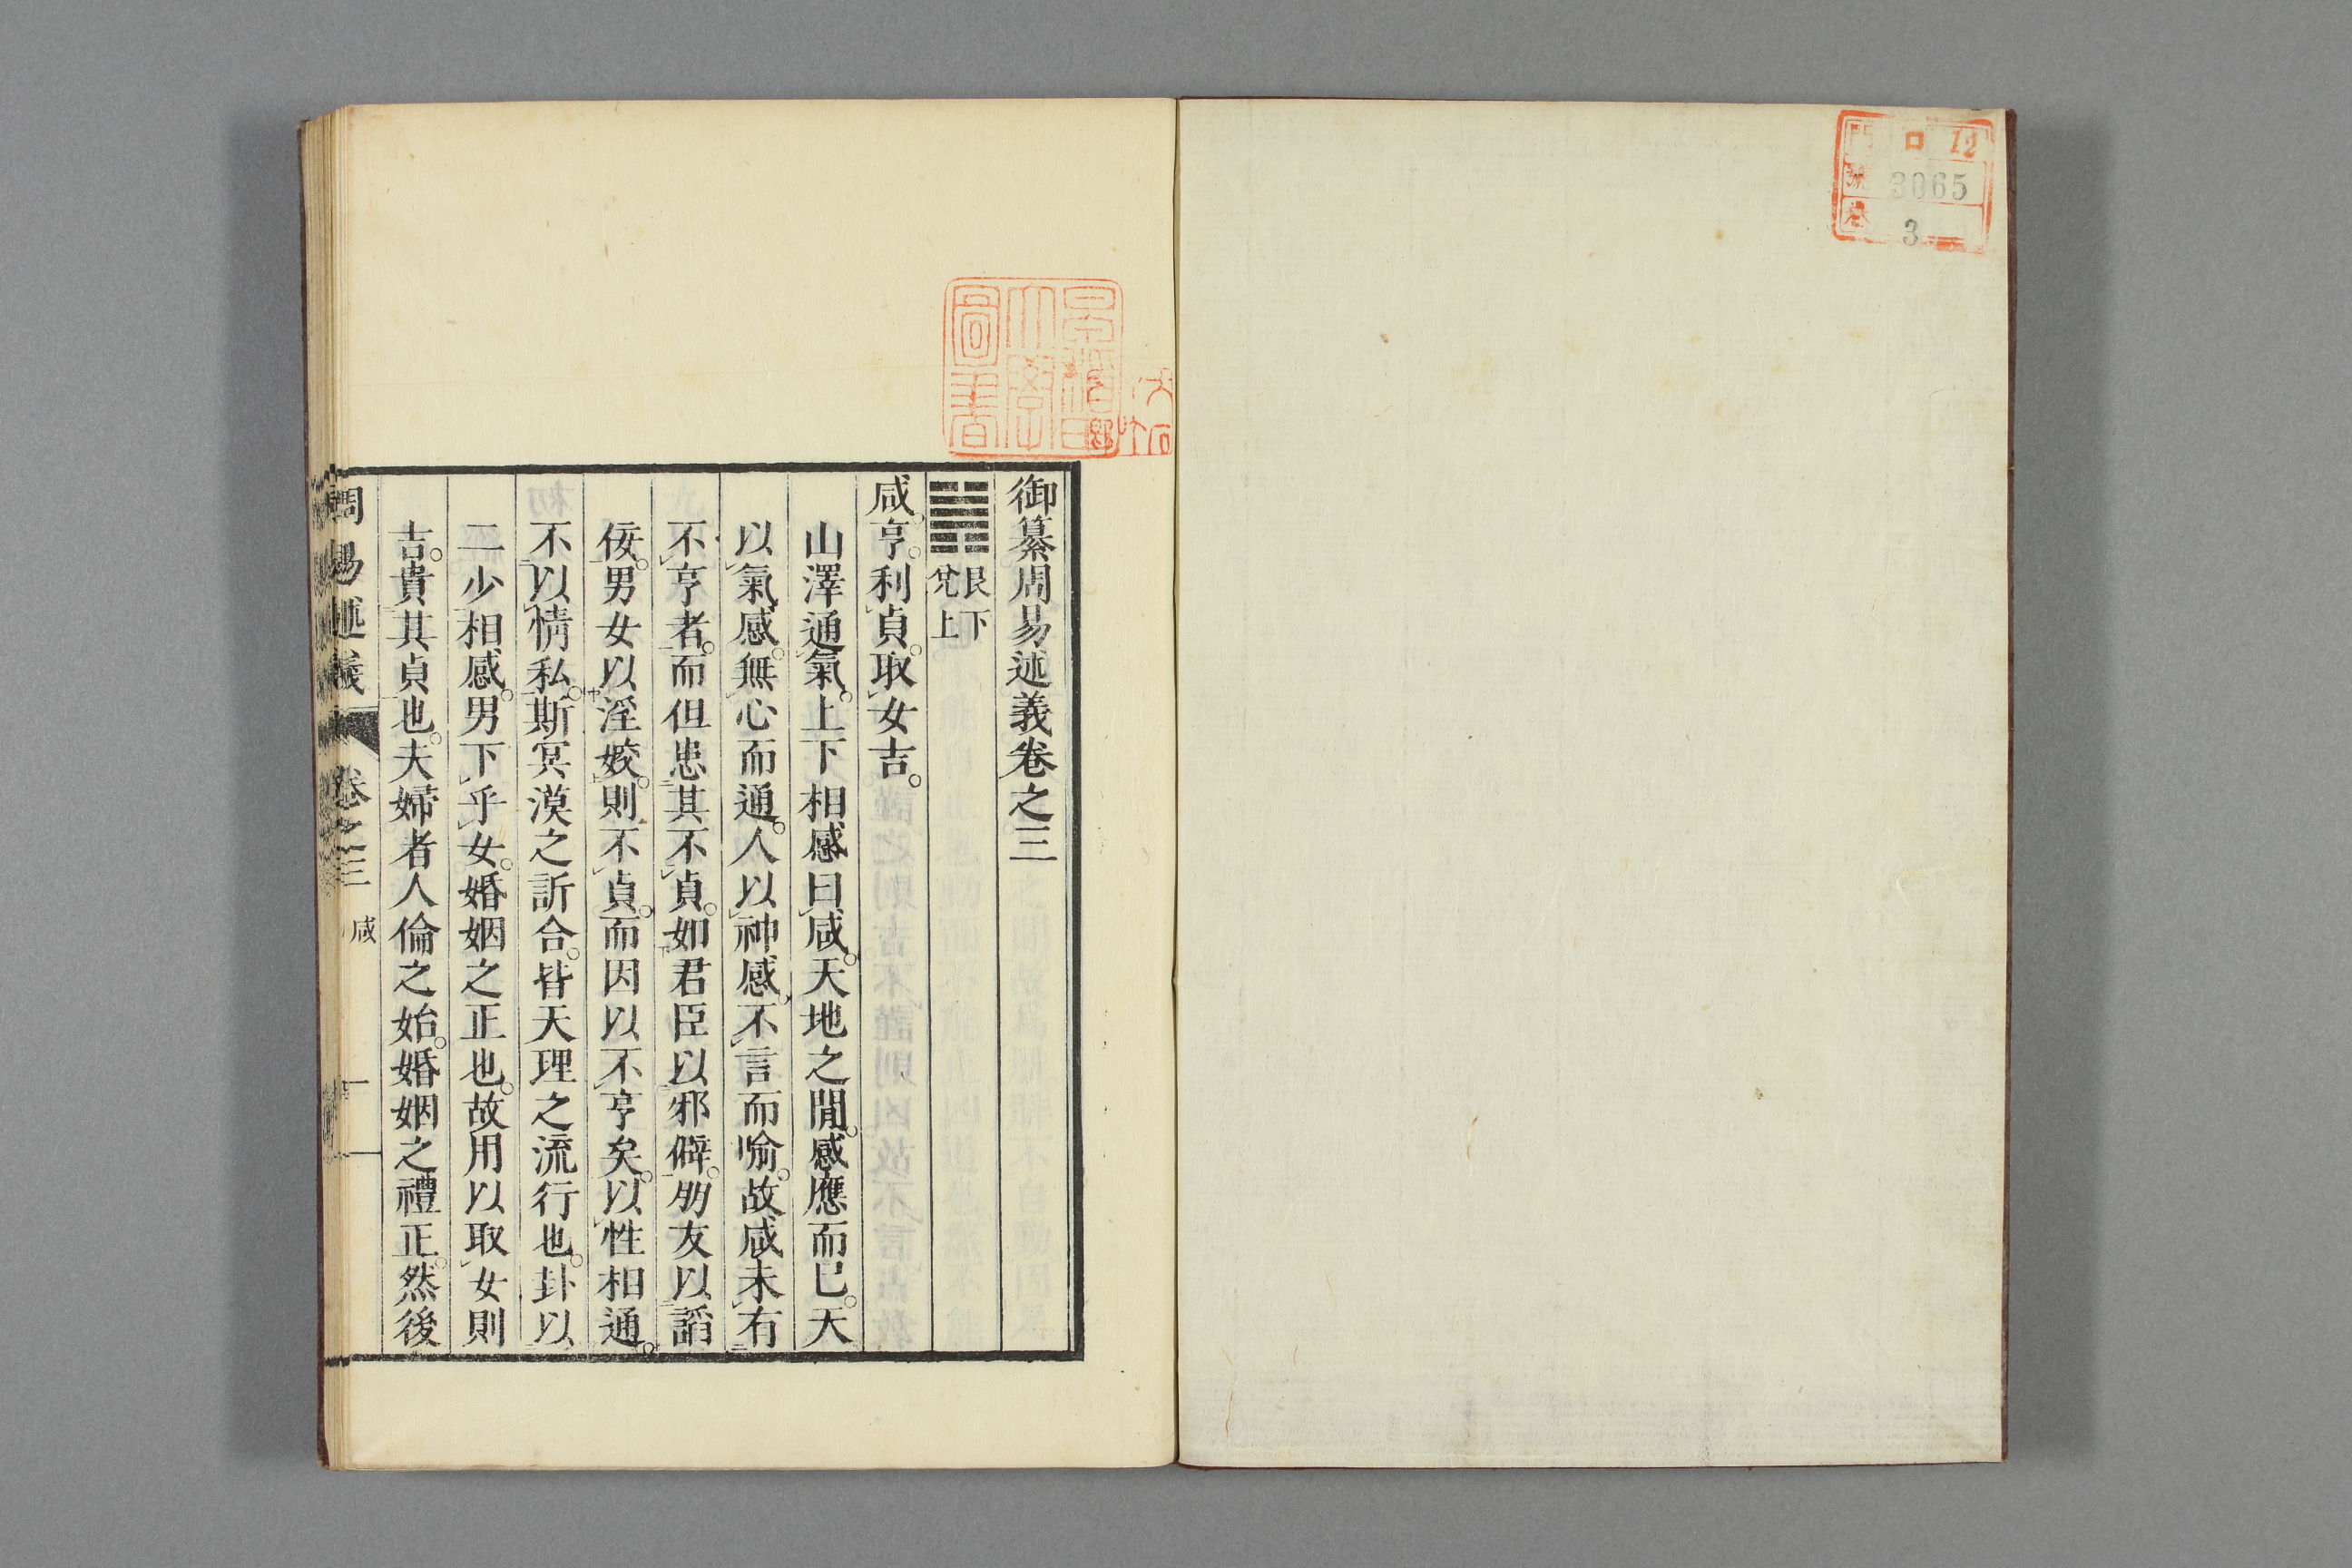 門 口 12
號 3065
卷 3
御纂周易述義卷之三
䷞ 艮下
兌上
咸。亨。利貞。取女吉。
山澤通氣。上下相感曰咸。天地之閒。感應而已。天
以氣感。無心而通。人以神感。不言而喻。故咸未有
不亨者。而但患其不貞。如君臣以邪僻。朋友以謟
佞。男女以淫姣。則不貞。而因以不亨矣。以性相通。
不以情私。斯冥漠之訢合。皆天理之流行也。卦以
二少相感。男下乎女。婚姻之正也。故用以取女則
吉。貴其貞也。夫婦者人倫之始。婚姻之禮正。然後
周易述義 卷之三 咸 一